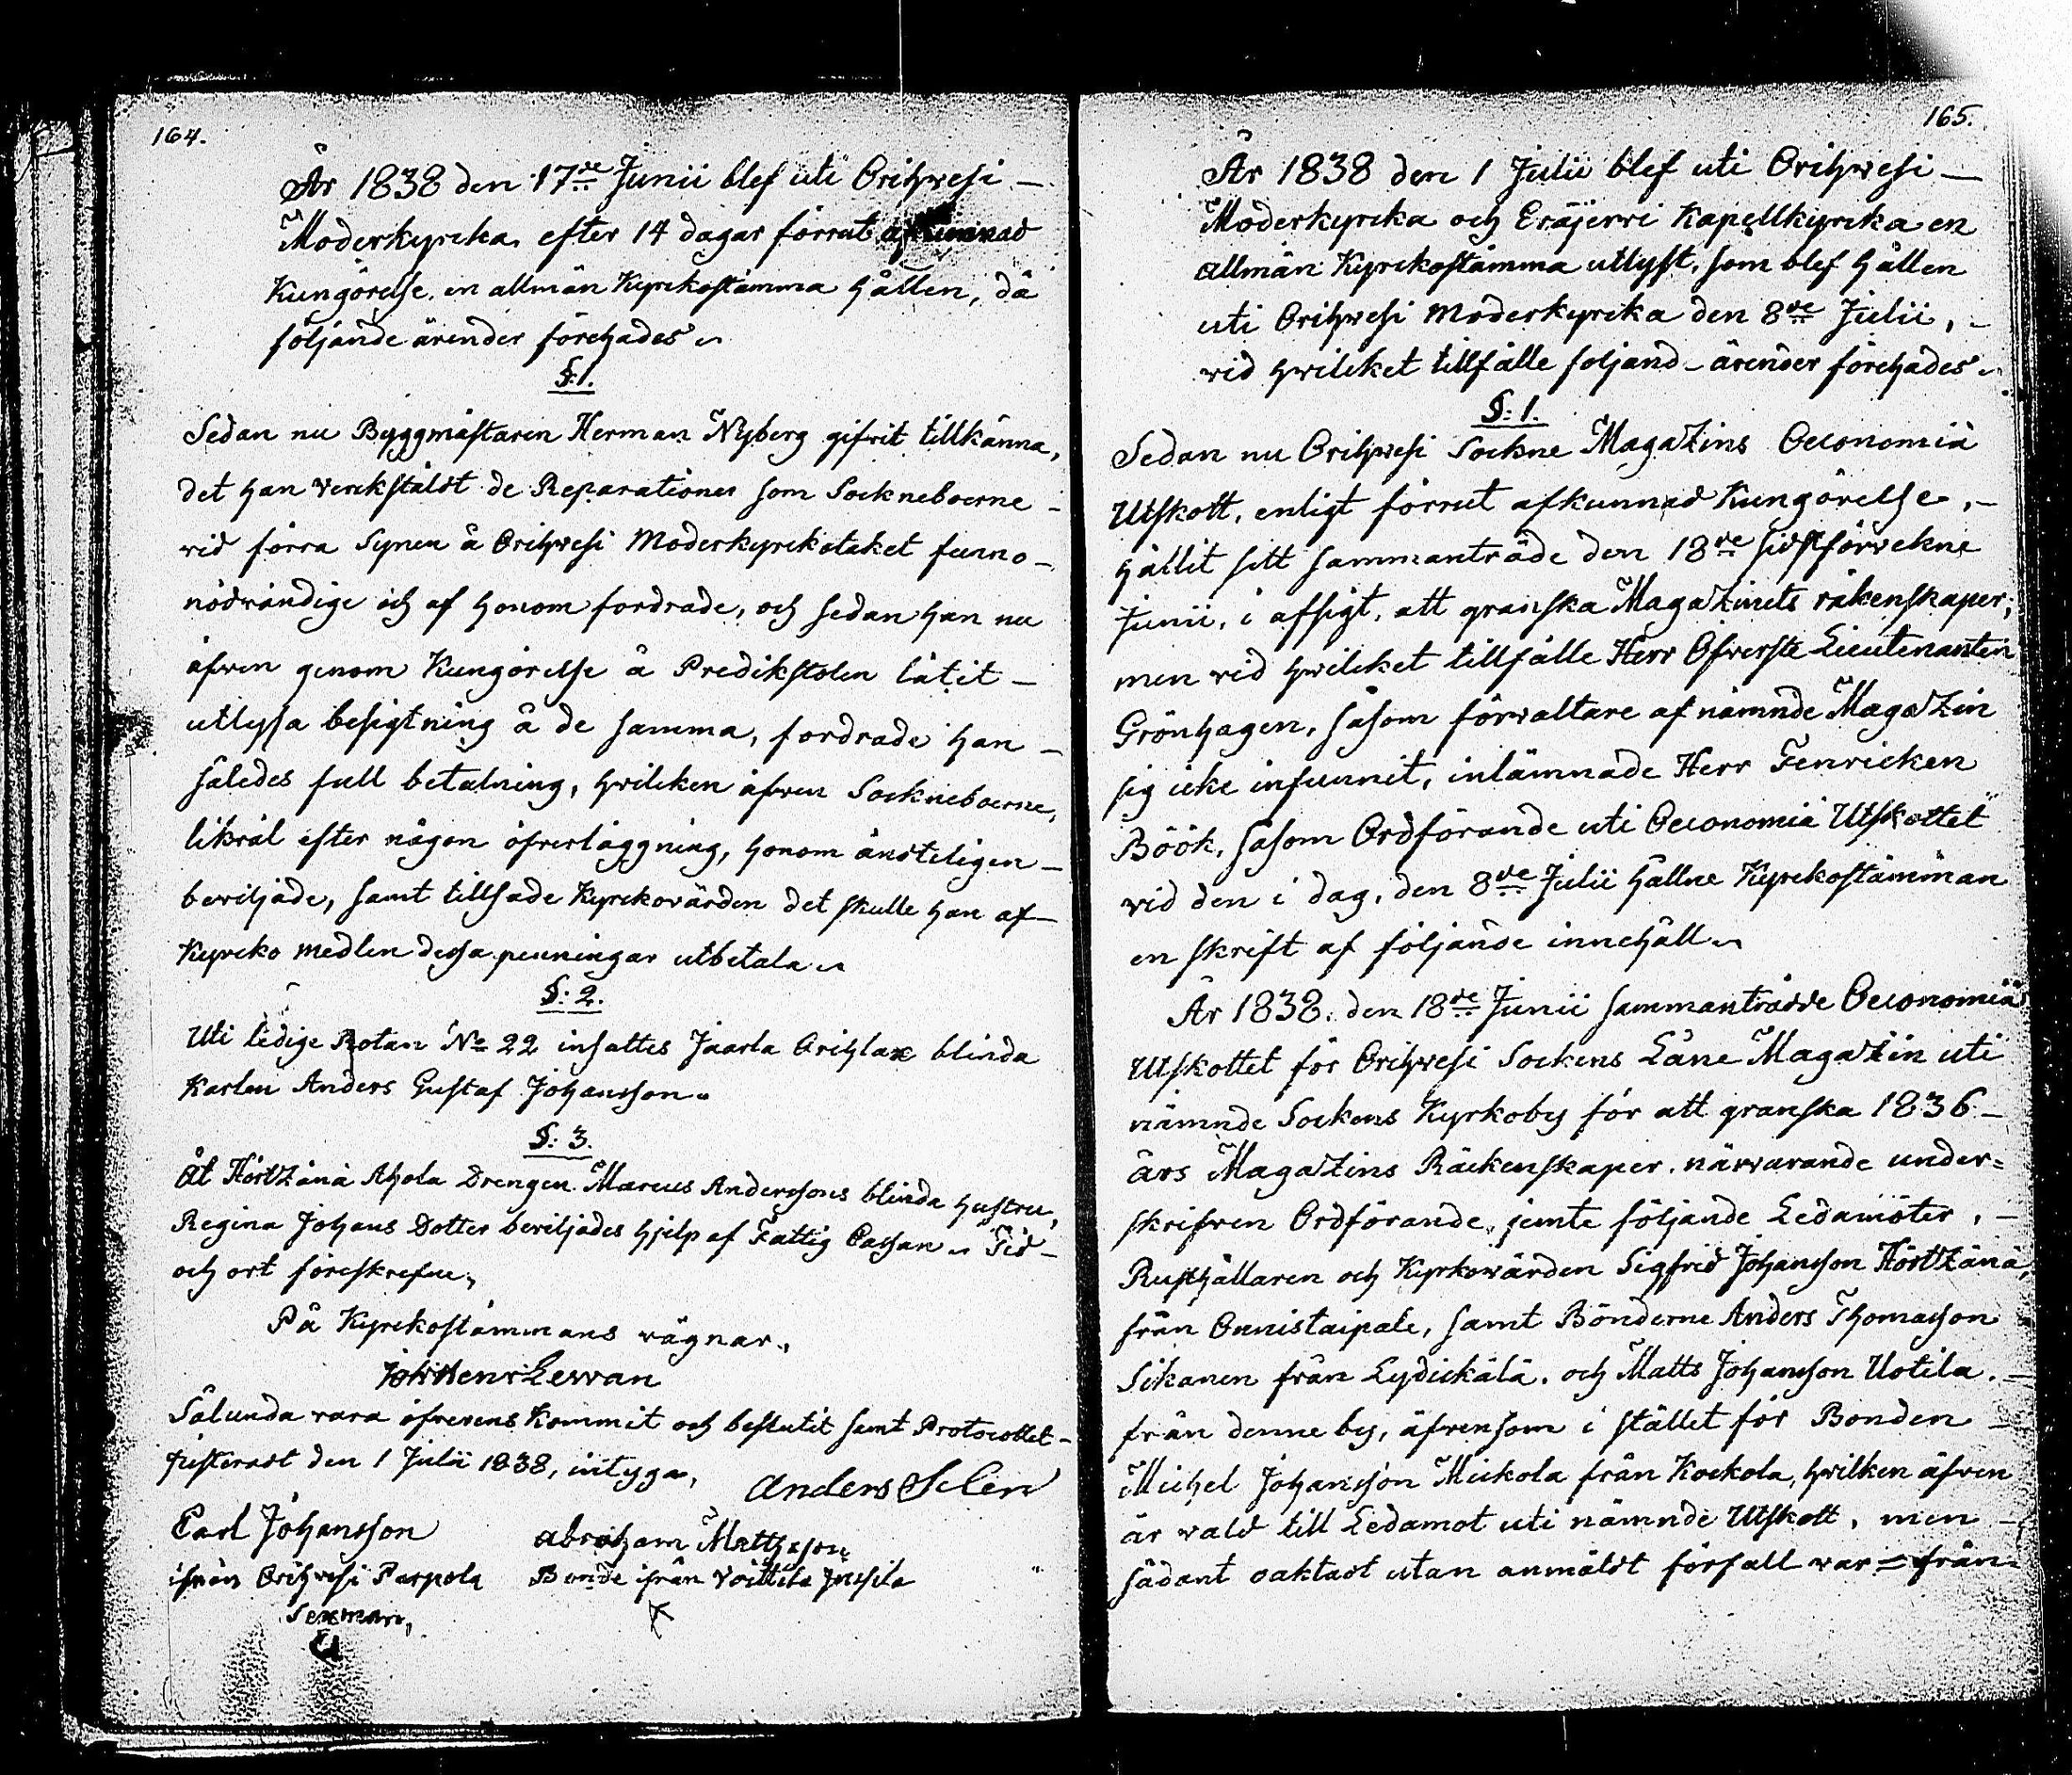 164.
År 1838 den 17de Junii blef uti Orihwesi –
Moderkyrcka, efter 14 dagar förrut afkunnad
Kungörelse, en allmän Kyrckostämma hållen, då
följande ärender förehades
§: 1.
Sedan nu Byggmästaren Herman Nyberg gifvit tillkänna,
det han verckstäldt de Reparationer som Sockneboerne –
vid förra Synen å Orihwesi Moderkyrckotaket funno –
nödvändige och af honom fordrade, och sedan han nu
äfven genom Kungörelse å Predikstolen låtit –
utlysa besigtning å de samma, fordrade han –
således full betalning, hvilcken äfven Sockneboerne,
likväl efter någon öfverläggning, honom ändteligen –
beviljade, samt tillsade Kyrckovärden det skulle han af –
Kyrcko medlen dessa penningar utbetala
§: 2.
Uti ledige Rotan No 22 insattes Jaarla Orihlax blinda
Karlen Anders Gustaf Johansson.
§: 3.
Åt Hörtzänä Ahola Drengen Marcus Anderssons blinda hustru,
Regina Johans Dotter beviljades hjelp af Fattig Cassan. Tid –
och ort föreskrefne,
På Kyrckostämmans vägnar,
Joh Henr Lewan
Sålunda vara öfverens kommit och beslutit samt Protocollet –
justerat den 1 Julii 1838, intyga,
Anders Selen
Carl Johansson
ifrån Orihvesi Parpola
Sexman,
Abraham Mattsson
Bonde ifrån Voittila Jussila
165.
År 1838 den 1 Julii blef uti Orihwesi –
Moderkyrcka och Eräjerwi Kapellkyrcka en
allmän Kyrckostämma utlyst, som blef hållen
uti Orihwesi Moderkyrcka den 8de Julii, –
vid hvilcket tillfälle följand – ärender förehades
§: 1.
Sedan nu Orihwesi Sockne Magatzins Oeconomiä
Utskott, enligt förrut afkunnad Kungörelse, –
hållit sitt sammanträde den 18de sidstförvekne
Junii, i afsigt, att granska Magatzinets räkenskaper;
men vid hvilcket tillfälle Herr Öfverste Lieutenanten
Grönhagen, såsom förvaltare af nämnde Magatzin
sig icke infunnit, inlämnade Herr Fenricken
Böök, såsom Ordförande uti Oeconomiä Utskottet
vid den i dag, den 8de Julii hållne Kyrckostämman
en skrift af följande innehåll
År 1838. den 18de Junii sammanträdde Oeconomiä
Utskottet för Orihvesi Sockens Låne Magatzin uti
nämnde Sockens Kyrkoby för att granska 1836 –
års Magatzins Räckenskaper. närvarande under=
skrifven Ordförande, jemte följande Ledamöter, –
Rusthållaren och Kyrkovärden Sigfrid Johansson Hörtzänä,
från Onnistaipale, samt Bönderne Anders Thomasson
Sikanen från Lydickälä. och Matts Johansson Uotila. –
från denne by, äfvensom i stället för Bonden –
Michel Johansson Mickola från Kockola, hvilken äfven
är vald till Ledamot uti nämnde Utskott, men –
sådant oaktadt utan anmäldt förfall var = från=